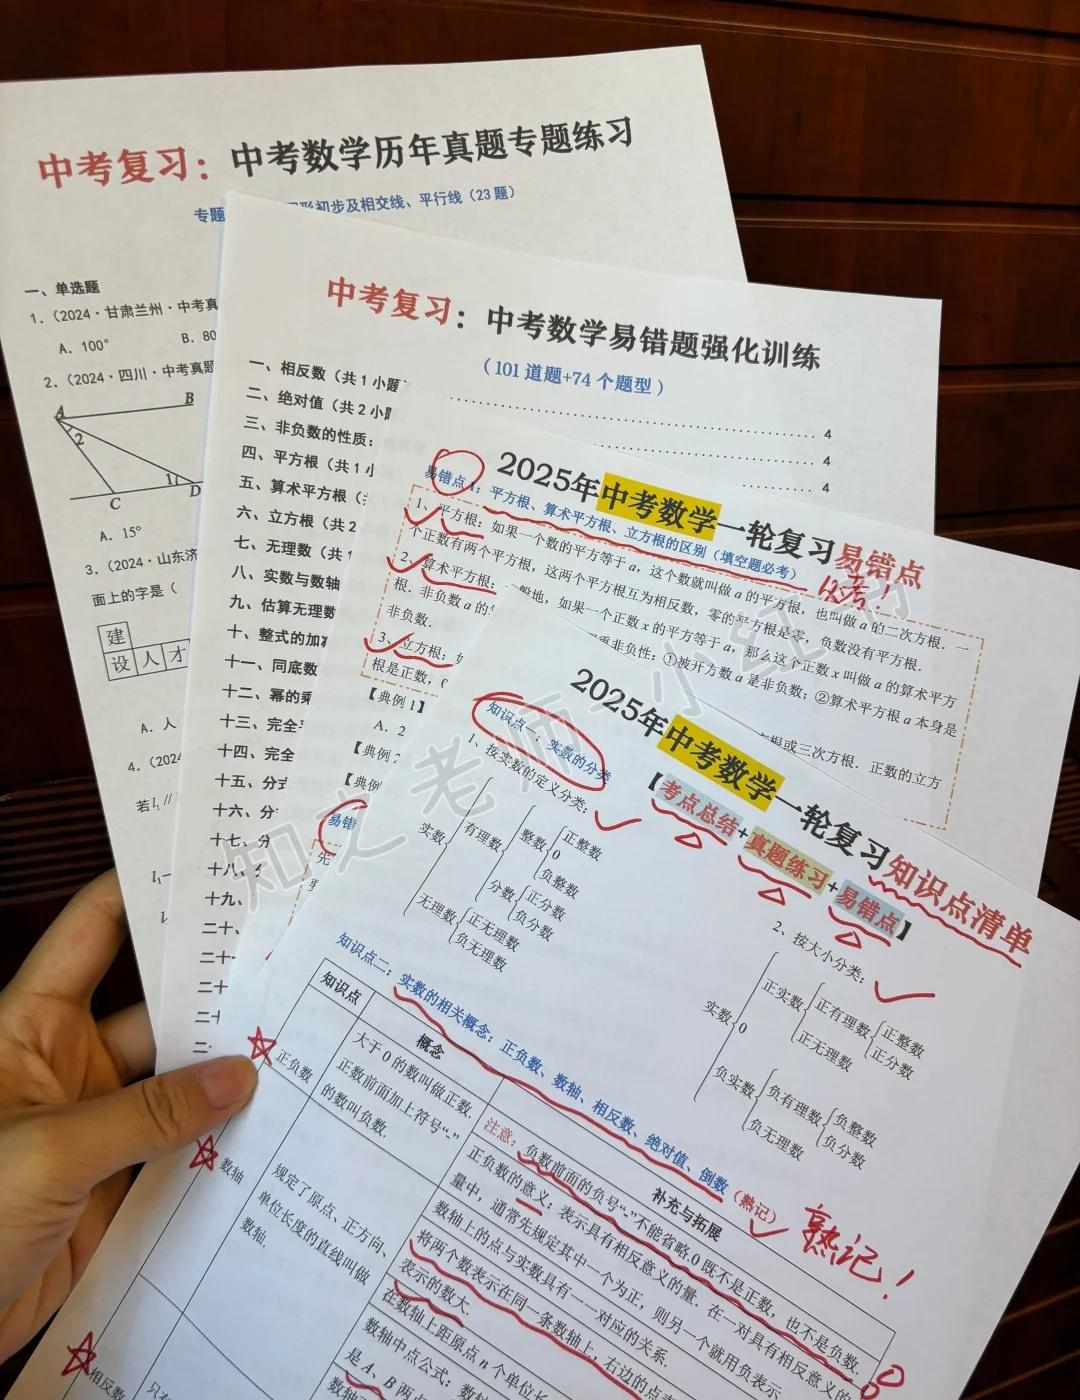 中考复习：中考数学历年真题专题练习
专题
形初步及相交线、平行线（23题）
一、单选题
1.（2024·甘肃兰州·中考真
A. 100°
B. 80
2.（2024·四川·中考真题
A
B
2
1
C
D
A. 15°
3.（2024·山东济
面上的字是（
建
设 人 才
A. 人
4.（2024
若l₁ //
l₁
中考复习：中考数学易错题强化训练
（101道题+74个题型）
一、相反数（共1小题
4
二、绝对值（共2小题
4
三、非负数的性质：
4
四、平方根（共1小
五、算术平方根（
六、立方根（共2
七、无理数（共1
八、实数与数轴
九、估算无理数
十、整式的加减
十一、同底数
十二、幂的乘
十三、完全平
十四、完全
十五、分式
十六、分
十七、分
十八、
十九、
二十、
二十
二十
二十
二
2025年中考数学一轮复习易错点
易错点1：平方根、算术平方根、立方根的区别（填空题必考）
必考！
1、平方根：如果一个数的平方等于a，这个数就叫做a的平方根，也叫做a的二次方根．一
个正数有两个平方根，这两个平方根互为相反数，零的平方根是零，负数没有平方根．
2、算术平方根：
般地，如果一个正数x的平方等于a，那么这个正数x叫做a的算术平方
根．非负数a的
重非负性：①被开方数a是非负数；②算术平方根a本身是
非负数．
3、立方根：
方根或三次方根．正数的立方
根是正数，0
【典例1】
A. 2
【典例2
【典例
易错
2025年中考数学一轮复习知识点清单
【考点总结+真题练习+易错点】
知识点一：实数的分类
1、按实数的定义分类：
实数
有理数
整数
正整数
0
负整数
分数
正分数
负分数
无理数
正无理数
负无理数
2、按大小分类：
实数
正实数
正有理数
正整数
正分数
正无理数
0
负实数
负有理数
负整数
负分数
负无理数
知识点二：实数的相关概念：正负数、数轴、相反数、绝对值、倒数（熟记）
熟记！
知识点
概念
补充与拓展
正负数
大于0的数叫做正数.
正数前面加上符号“-”
的数叫负数.
注意：负数前面的负号“-”不能省略.0既不是正数，也不是负数.
正负数的意义：表示具有相反意义的量．在一对具有相反意义的
量中，通常先规定其中一个为正，则另一个就用负表示
数轴
规定了原点、正方向、
单位长度的直线叫做
数轴.
数轴上的点与实数具有一一对应的关系.
将两个数表示在同一条数轴上，右边的点表
表示的数大.
在数轴上距原点n个单位长
数轴中点公式：数轴
是A、B两点
相反数
只有
知之老师 小红书